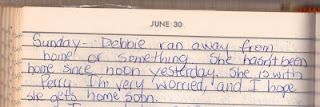 JUNE 30
Sunday - Debbie ran away from
home or something. She hasn't been
home since noon yesterday. She is with
Perry. I'm very worried, and I hope
she gets home soon.